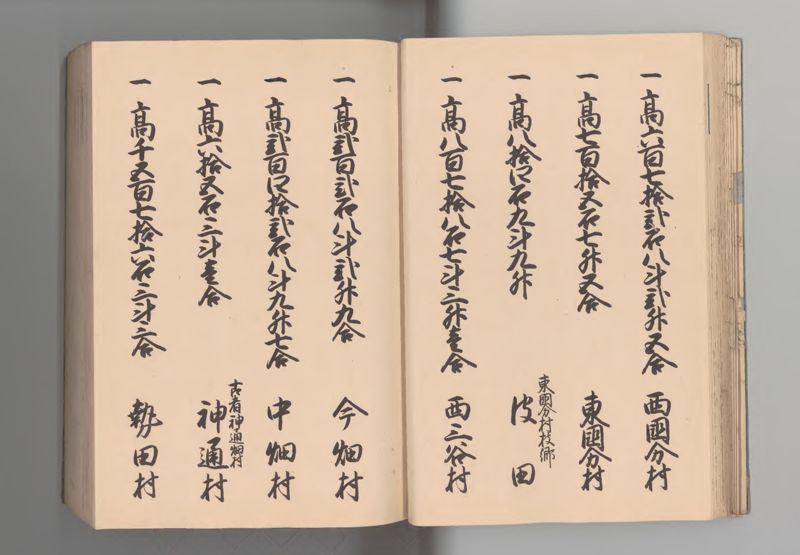 一 高六百七拾弐石八斗弐升五合 西國分村
一 高七百拾五石七升五合 東國分村
東國分村枝郷
一 高八拾四石九斗九升 波田
一 高八百七拾八石七斗三升壱合 西三谷村
一 高弐百弐石八斗弐升九合 今畑村
一 高弐百四拾弐石八斗九升七合 中畑村
古者神通畑村
一 高六拾五石三斗壱合 神通村
一 高千五百七拾六石三斗六合 勢田村